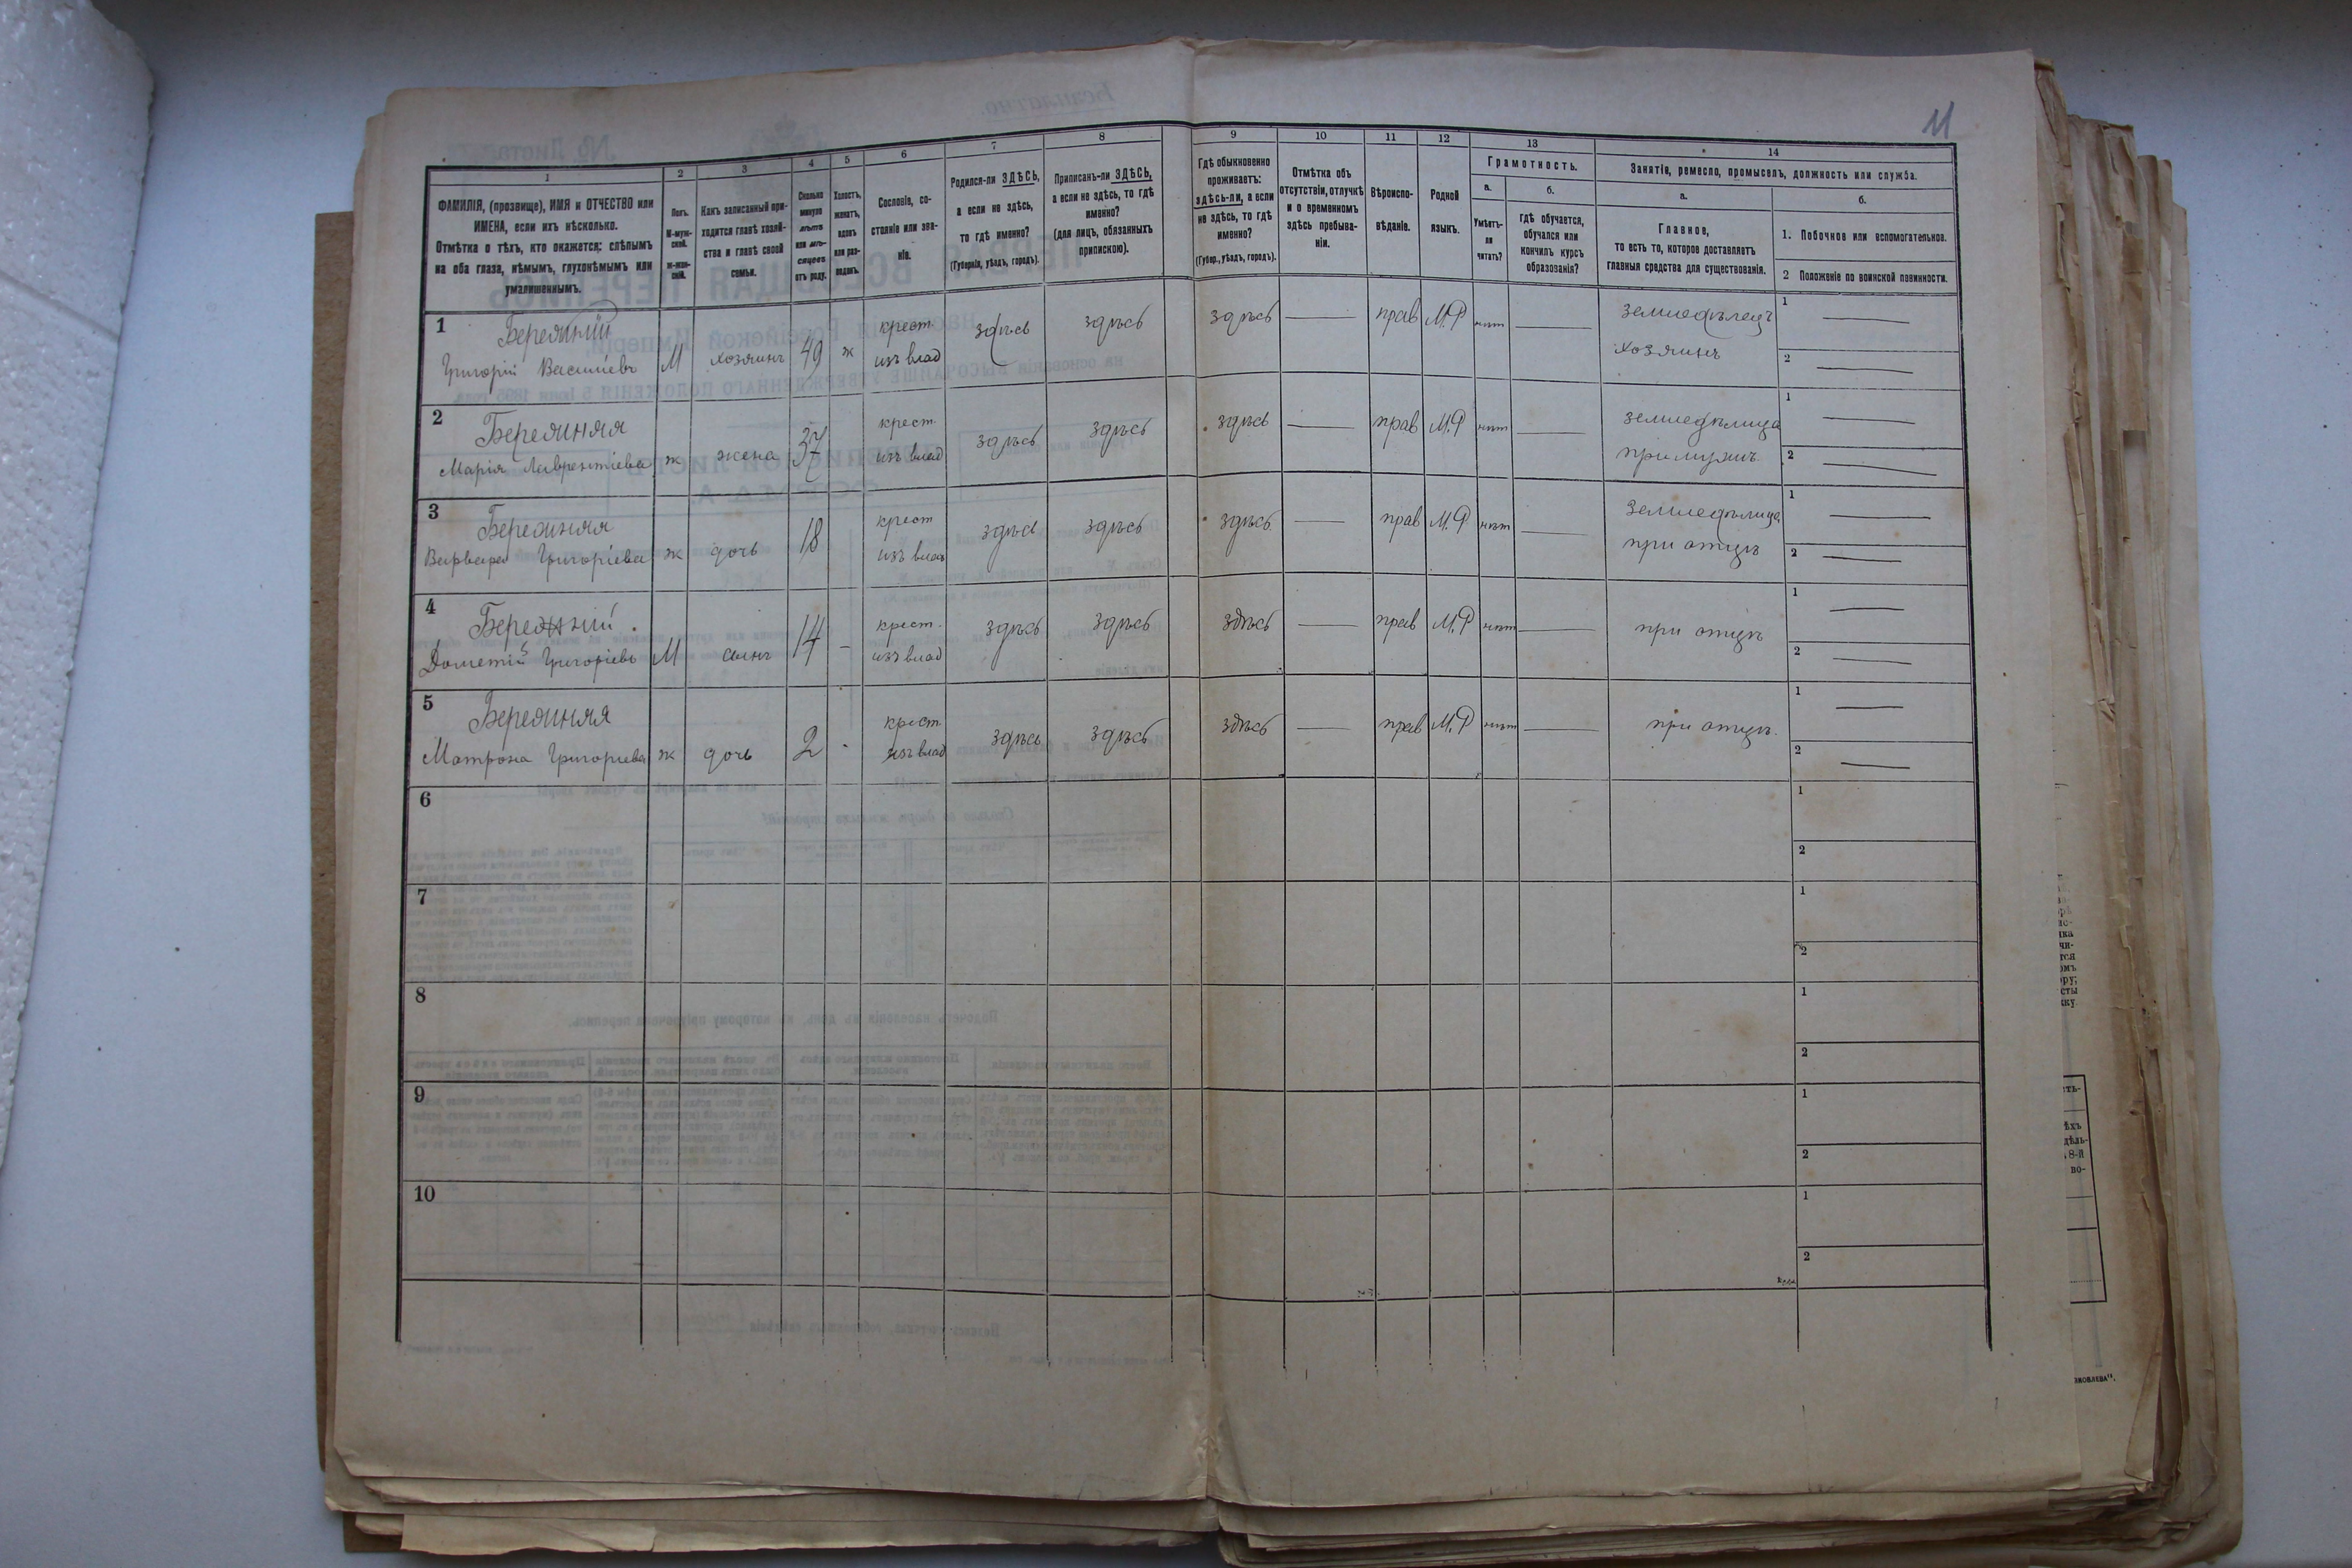 11
1 2 3 4 5 6 7 8 9 10 11 12 13 14
ФАМИЛІЯ, (прозвище), ИМЯ и ОТЧЕСТВО или
ИМЕНА, если ихъ нѣсколько.
Отмѣтка о тѣхъ, кто окажется: слѣпымъ
на оба глаза, нѣмымъ, глухонѣмымъ или
умалишеннымъ.
Полъ.
М-муж-
ской.
ж-жен-
скій.
Какъ записанный при-
ходится главѣ хозяй-
ства и главѣ своей
семьи.
Сколько
минуло
лѣтъ
или мѣ-
сяцевъ
отъ роду.
Холостъ,
женатъ,
вдовъ
или раз-
веденъ.
Сословіе, со-
стояніе или зва-
ніе.
Родился-ли ЗДѢСЬ,
а если не здѣсь,
то гдѣ именно?
(Губернія, уѣздъ, городъ).
Приписанъ-ли ЗДѢСЬ,
а если не здѣсь, то гдѣ
именно?
(для лицъ, обязанныхъ
припискою).
Гдѣ обыкновенно
проживаетъ:
здѣсь-ли, а если
не здѣсь, то гдѣ
именно?
(Губер., уѣздъ, городъ).
Отмѣтка объ
отсутствіи, отлучкѣ
и о временномъ
здѣсь пребыва-
ніи.
Вѣроиспо-
вѣданіе.
Родной
языкъ.
Грамотность.
а.
Умѣетъ-
ли
читать?
б.
гдѣ обучается,
обучался или
кончилъ курсъ
образованія?
Занятіе, ремесло, промыселъ, должность или служба.
а.
Главное,
то есть то, которое доставляетъ
главныя средства для существованія.
б.
1. Побочное или вспомогательное.
2 Положеніе по воинской повинности.
1 Бережний крест. здѣсь здѣсь здѣсь прав М.Р нѣт земледѣлецъ 1
Григорій Васильевъ М хозяинъ 49 ж изъ влад хозяинъ 2
2 Бережняя крест. здѣсь здѣсь здѣсь прав М.Р нѣт земледѣлица 1
Марія Лаврентіева ж жена 37 изъ влад при мужѣ 2
3 Бережняя крест здѣсь здѣсь здѣсь прав М.Р нѣт земледѣлица 1
Варвара Григоріева ж дочь 18 изъ влад при отцѣ 2
4 Бережний крест. здѣсь здѣсь здѣсь прав М.Р нѣт при отцѣ 1
Дометій Григоріевъ М сынъ 14 изъ влад 2
5 Бережняя крест. здѣсь здѣсь здѣсь прав М.Р нѣт при отцѣ 1
Матрона Григориева ж дочь 2 изъ влад 2
6 1
2
7 1
2
8 1
2
9 1
2
10 1
2